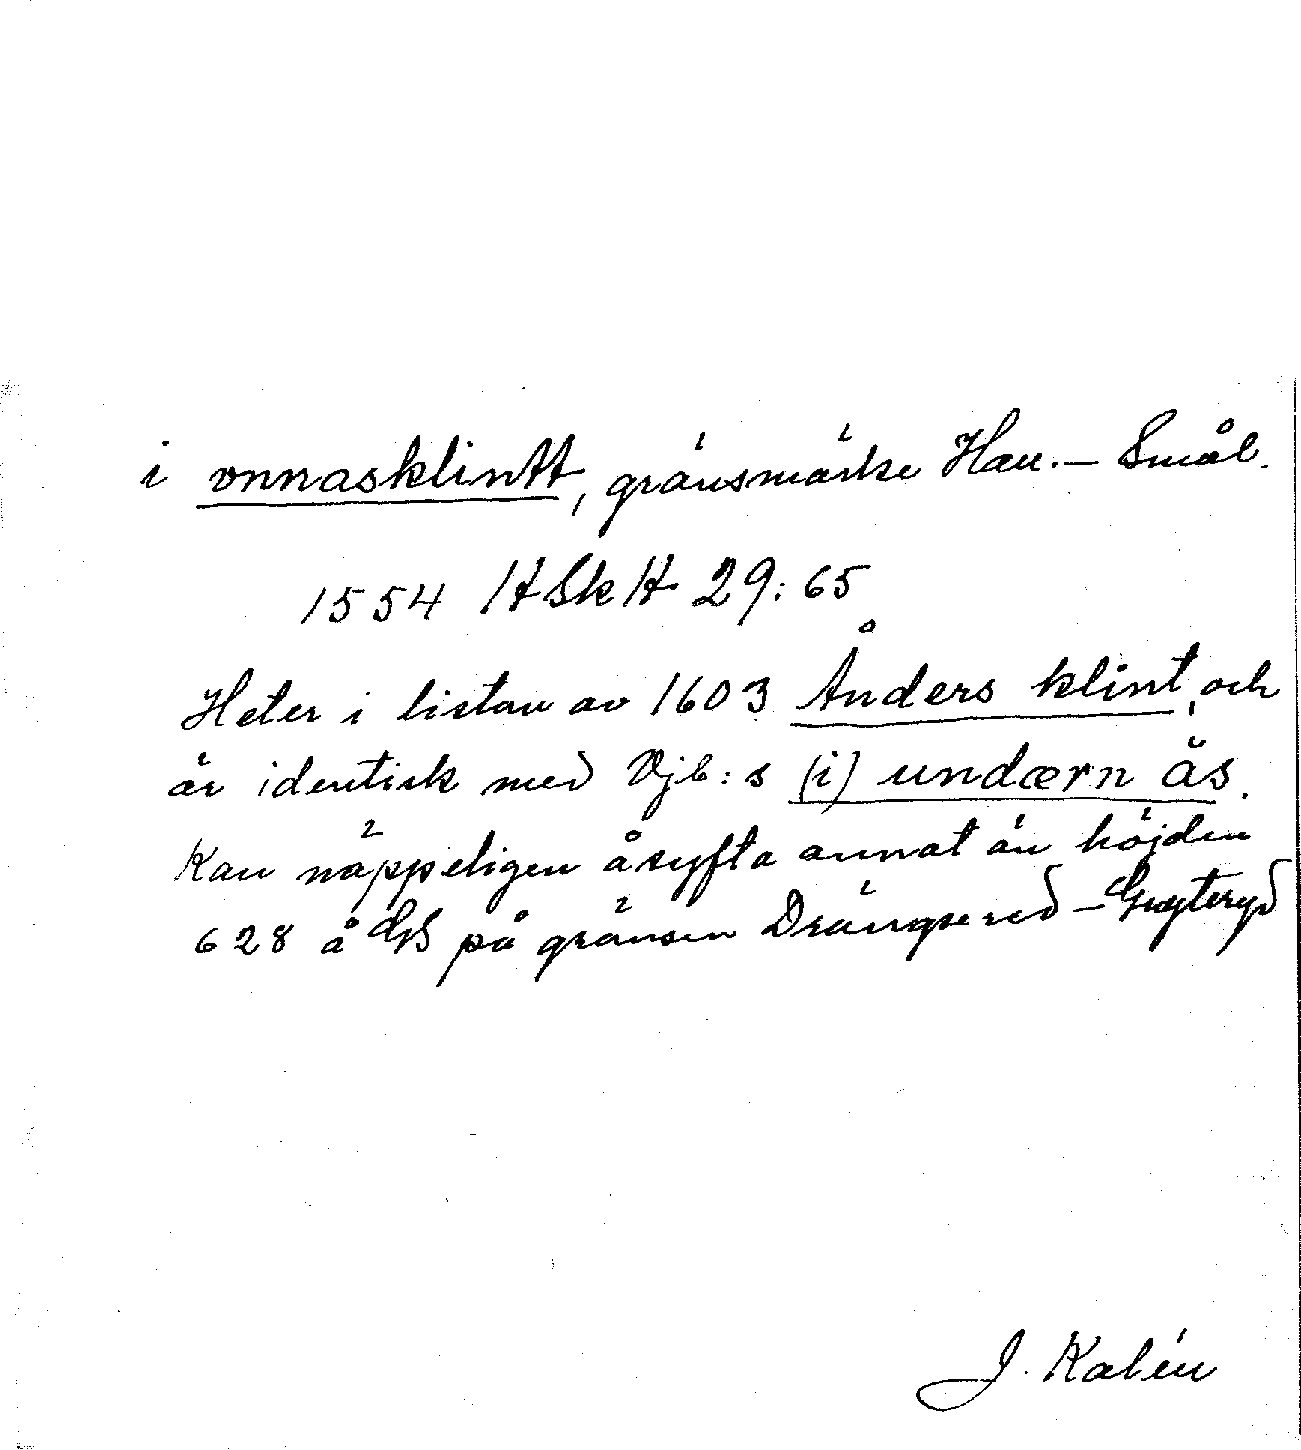 i onnasklintt, gränsmärke Hall.– Smål.
1554 HSkH 29:65
Heter i listan av 1603 Ånders klint, och
är identisk med Vjb:s (i) undærn ås.
Kan näppeligen åsyfta annat än höjden
628 å GS på gränsen Drängsered – Gryteryd
J. Kalén